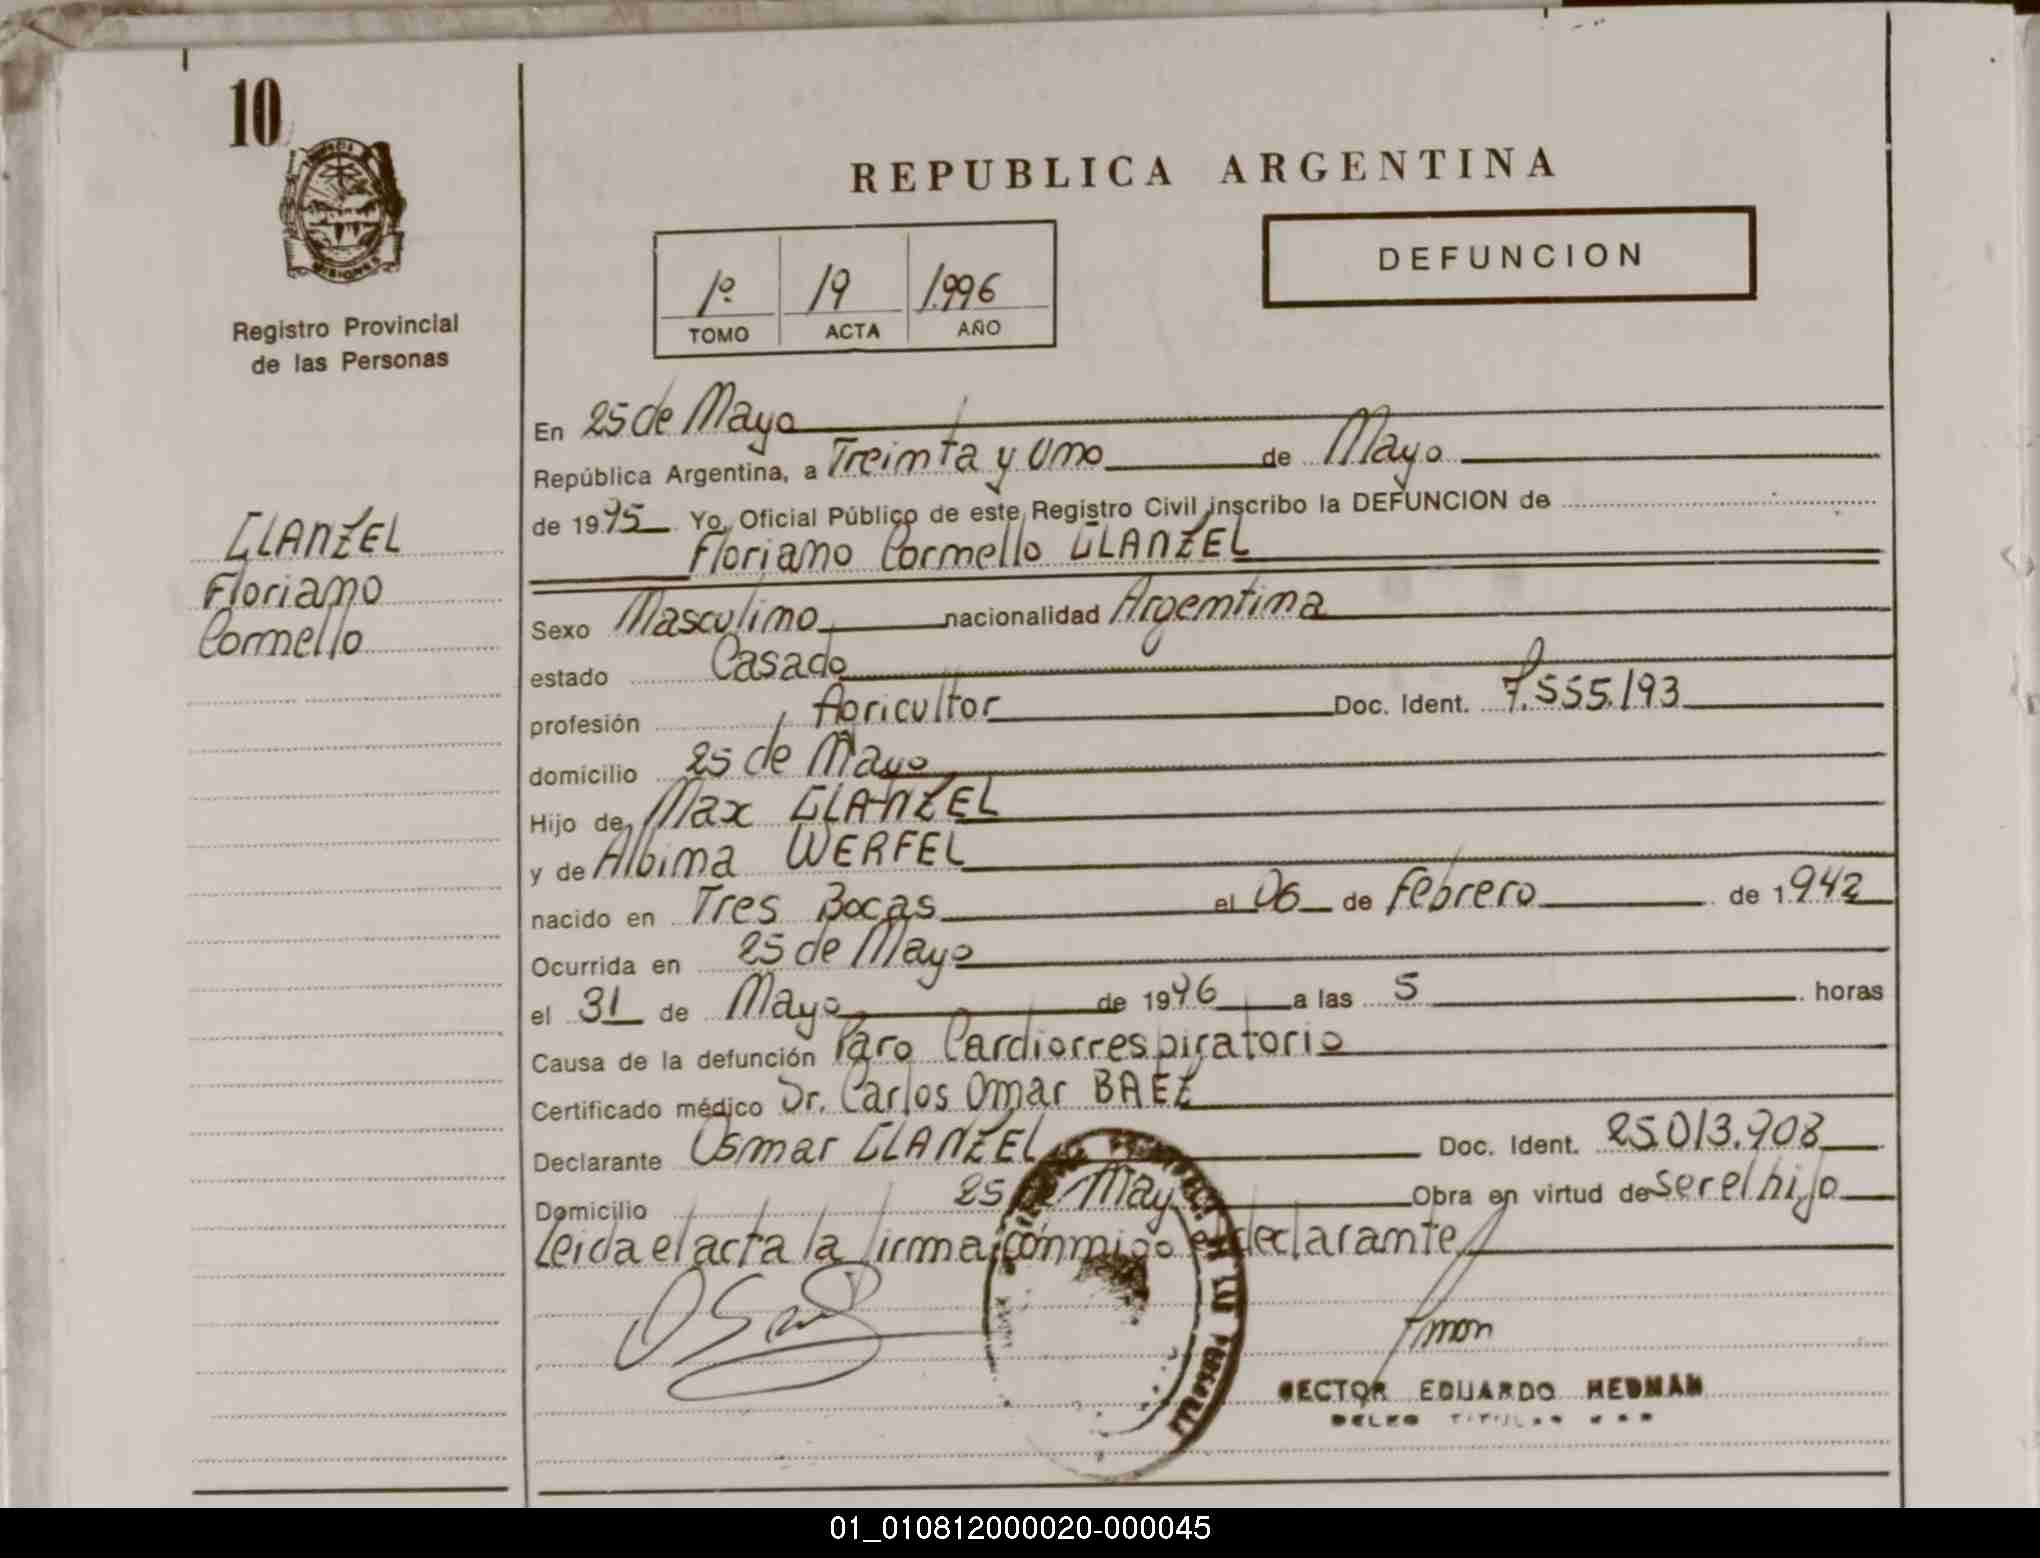 10
MISIONES
Registro Provincial
de las Personas
REPUBLICA ARGENTINA
1º 19 1.996
TOMO ACTA AÑO
DEFUNCION
GLANZEL
Floriano
Cornello
En 25 de Mayo
República Argentina, a Treinta y Uno de Mayo
de 1995 Yo, Oficial Público de este Registro Civil inscribo la DEFUNCION de
Floriano Cornello GLANZEL
Sexo Masculino nacionalidad Argentina
estado Casado
profesión Agricultor Doc. Ident. 7.555.193
domicilio 25 de Mayo
Hijo de Max GLANZEL
y de Albina WERFEL
nacido en Tres Bocas el 06 de Febrero de 1942
Ocurrida en 25 de Mayo
el 31 de Mayo de 1996 a las 5 horas
Causa de la defunción Paro Cardiorrespiratorio
Certificado médico Dr. Carlos Omar BAEZ
Declarante Osmar GLANZEL Doc. Ident. 25.013.908
Domicilio 25 de Mayo Obra en virtud de ser el hijo
Leida el acta la firma conmigo el declarante
HECTOR EDUARDO HEDMAN
01_010812000020-000045